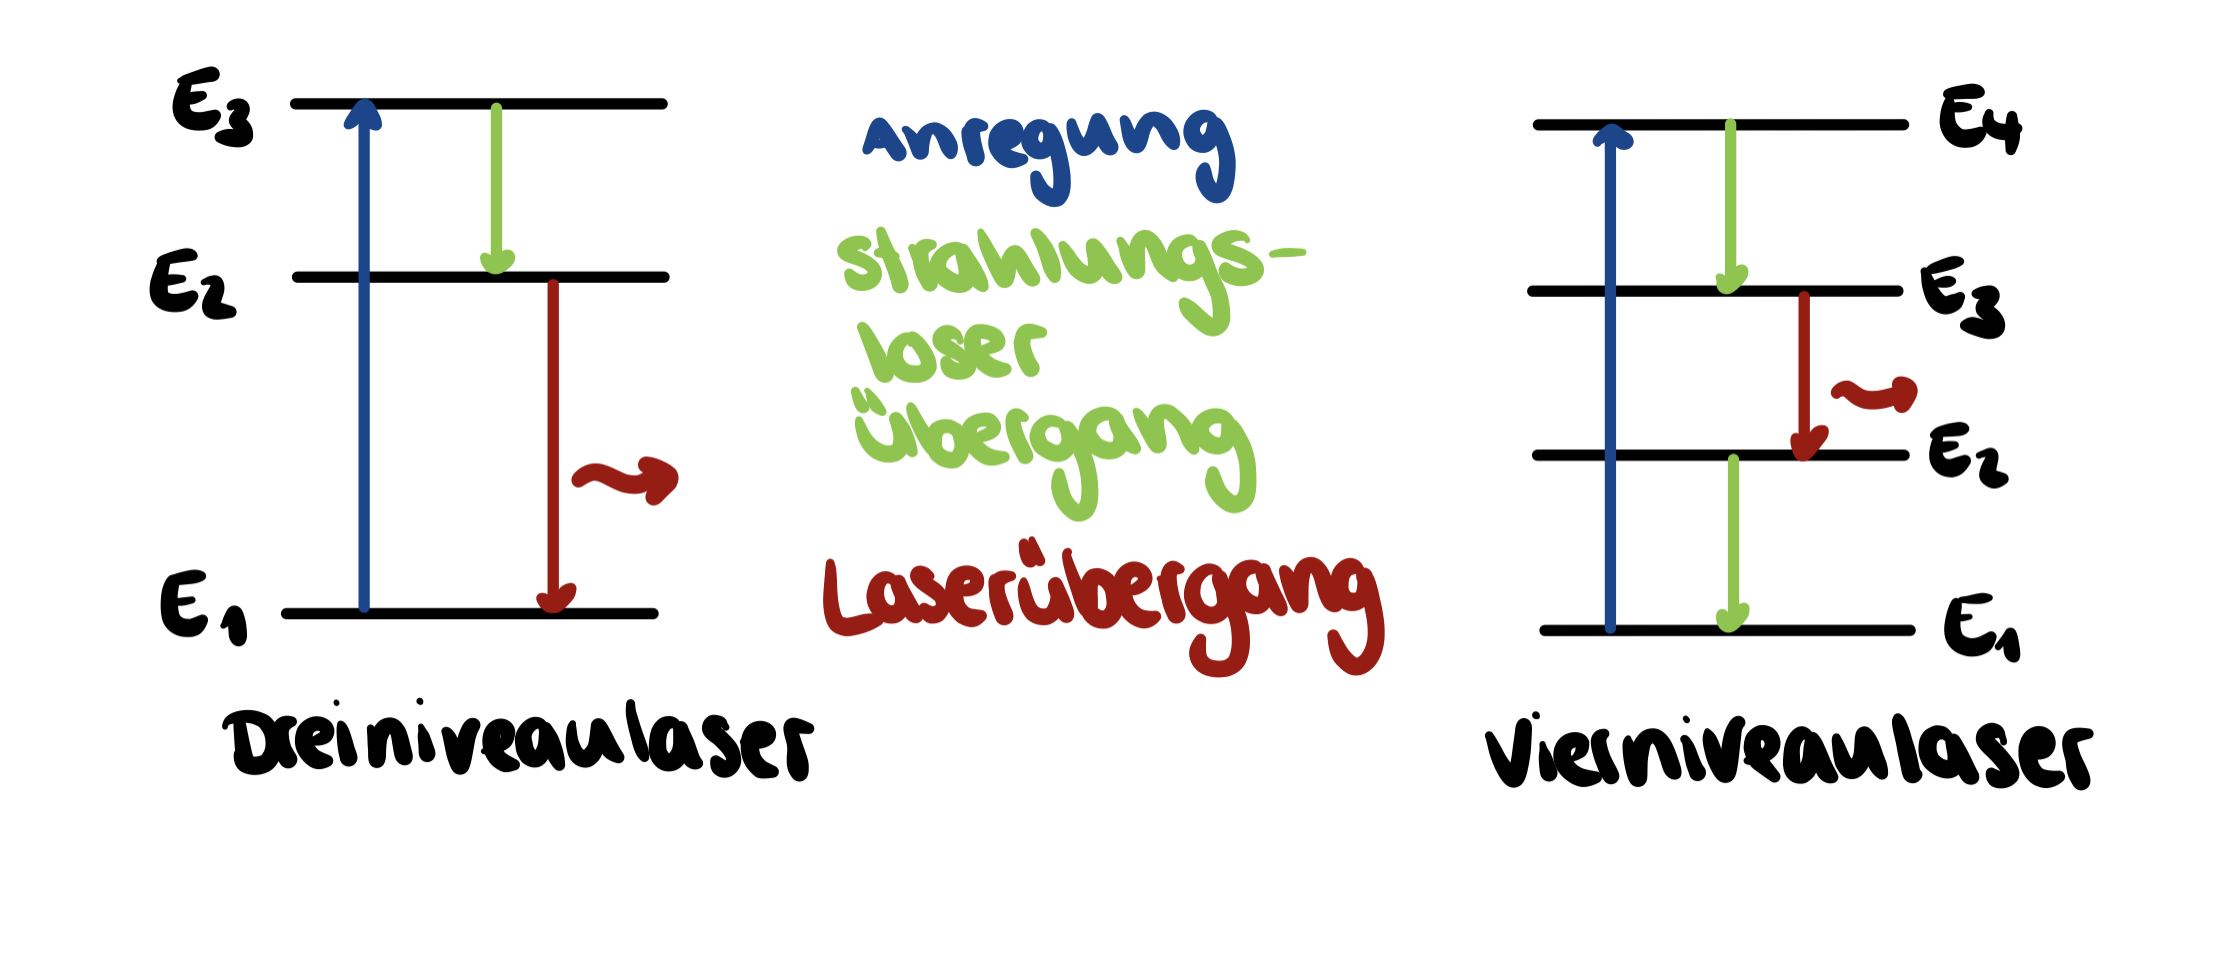 E3
E2
E1
Dreiniveaulaser
Anregung
strahlungs-
loser
übergang
Laserübergang
E4
E3
E2
E1
Vierniveaulaser